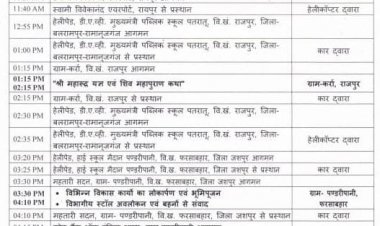 11:40 AM स्वामी विवेकानंद एयरपोर्ट, रायपुर से प्रस्थान हेलीकॉप्टर द्वारा
12:55 PM हेलीपेड, डी.ए.व्ही. मुख्यमंत्री पब्लिक स्कूल पतरातू, वि.खं. राजपुर, जिला-
बलरामपुर-रामानुजगंज आगमन
हेलीपेड, डी.ए.व्ही. मुख्यमंत्री पब्लिक स्कूल पतरातू, वि.खं. राजपुर, जिला-
बलरामपुर-रामानुजगंज से प्रस्थान कार द्वारा
01:15 PM ग्राम-करां, वि.खं. राजपुर आगमन
01:15 PM
02:15 PM "श्री महारुद्र यज्ञ एवं शिव महापुराण कथा" ग्राम-करां, राजपुर
02:15 PM ग्राम-करां, वि.खं. राजपुर से प्रस्थान कार द्वारा
02:30 PM हेलीपेड, डी.ए.व्ही. मुख्यमंत्री पब्लिक स्कूल पतरातू, वि.खं. राजपुर, जिला-
बलरामपुर-रामानुजगंज आगमन
02:35 PM हेलीपेड, डी.ए.व्ही. मुख्यमंत्री पब्लिक स्कूल पतरातू, वि.खं. राजपुर, जिला-
बलरामपुर-रामानुजगंज से प्रस्थान हेलीकॉप्टर द्वारा
03:20 PM हेलीपेड, हाई स्कूल मैदान पण्डरीपानी, वि.ख. फरसाबहार, जिला जशपुर आगमन
03:25 PM हेलीपेड, हाई स्कूल मैदान पण्डरीपानी, वि.ख. फरसाबहार, जिला जशपुर से प्रस्थान कार द्वारा
03:30 PM महतारी सदन, ग्राम- पण्डरीपानी, वि.ख. फरसाबहार, जिला जशपुर आगमन
03:30 PM • विभिन्न विकास कार्यों का लोकार्पण एवं भूमिपूजन ग्राम- पण्डरीपानी,
04:10 PM • विभागीय स्टॉल अवलोकन एवं बहनों से संवाद फरसाबहार
04:10 PM महतारी सदन, ग्राम- पण्डरीपानी, वि.ख. फरसाबहार, जिला जशपुर से प्रस्थान कार द्वारा